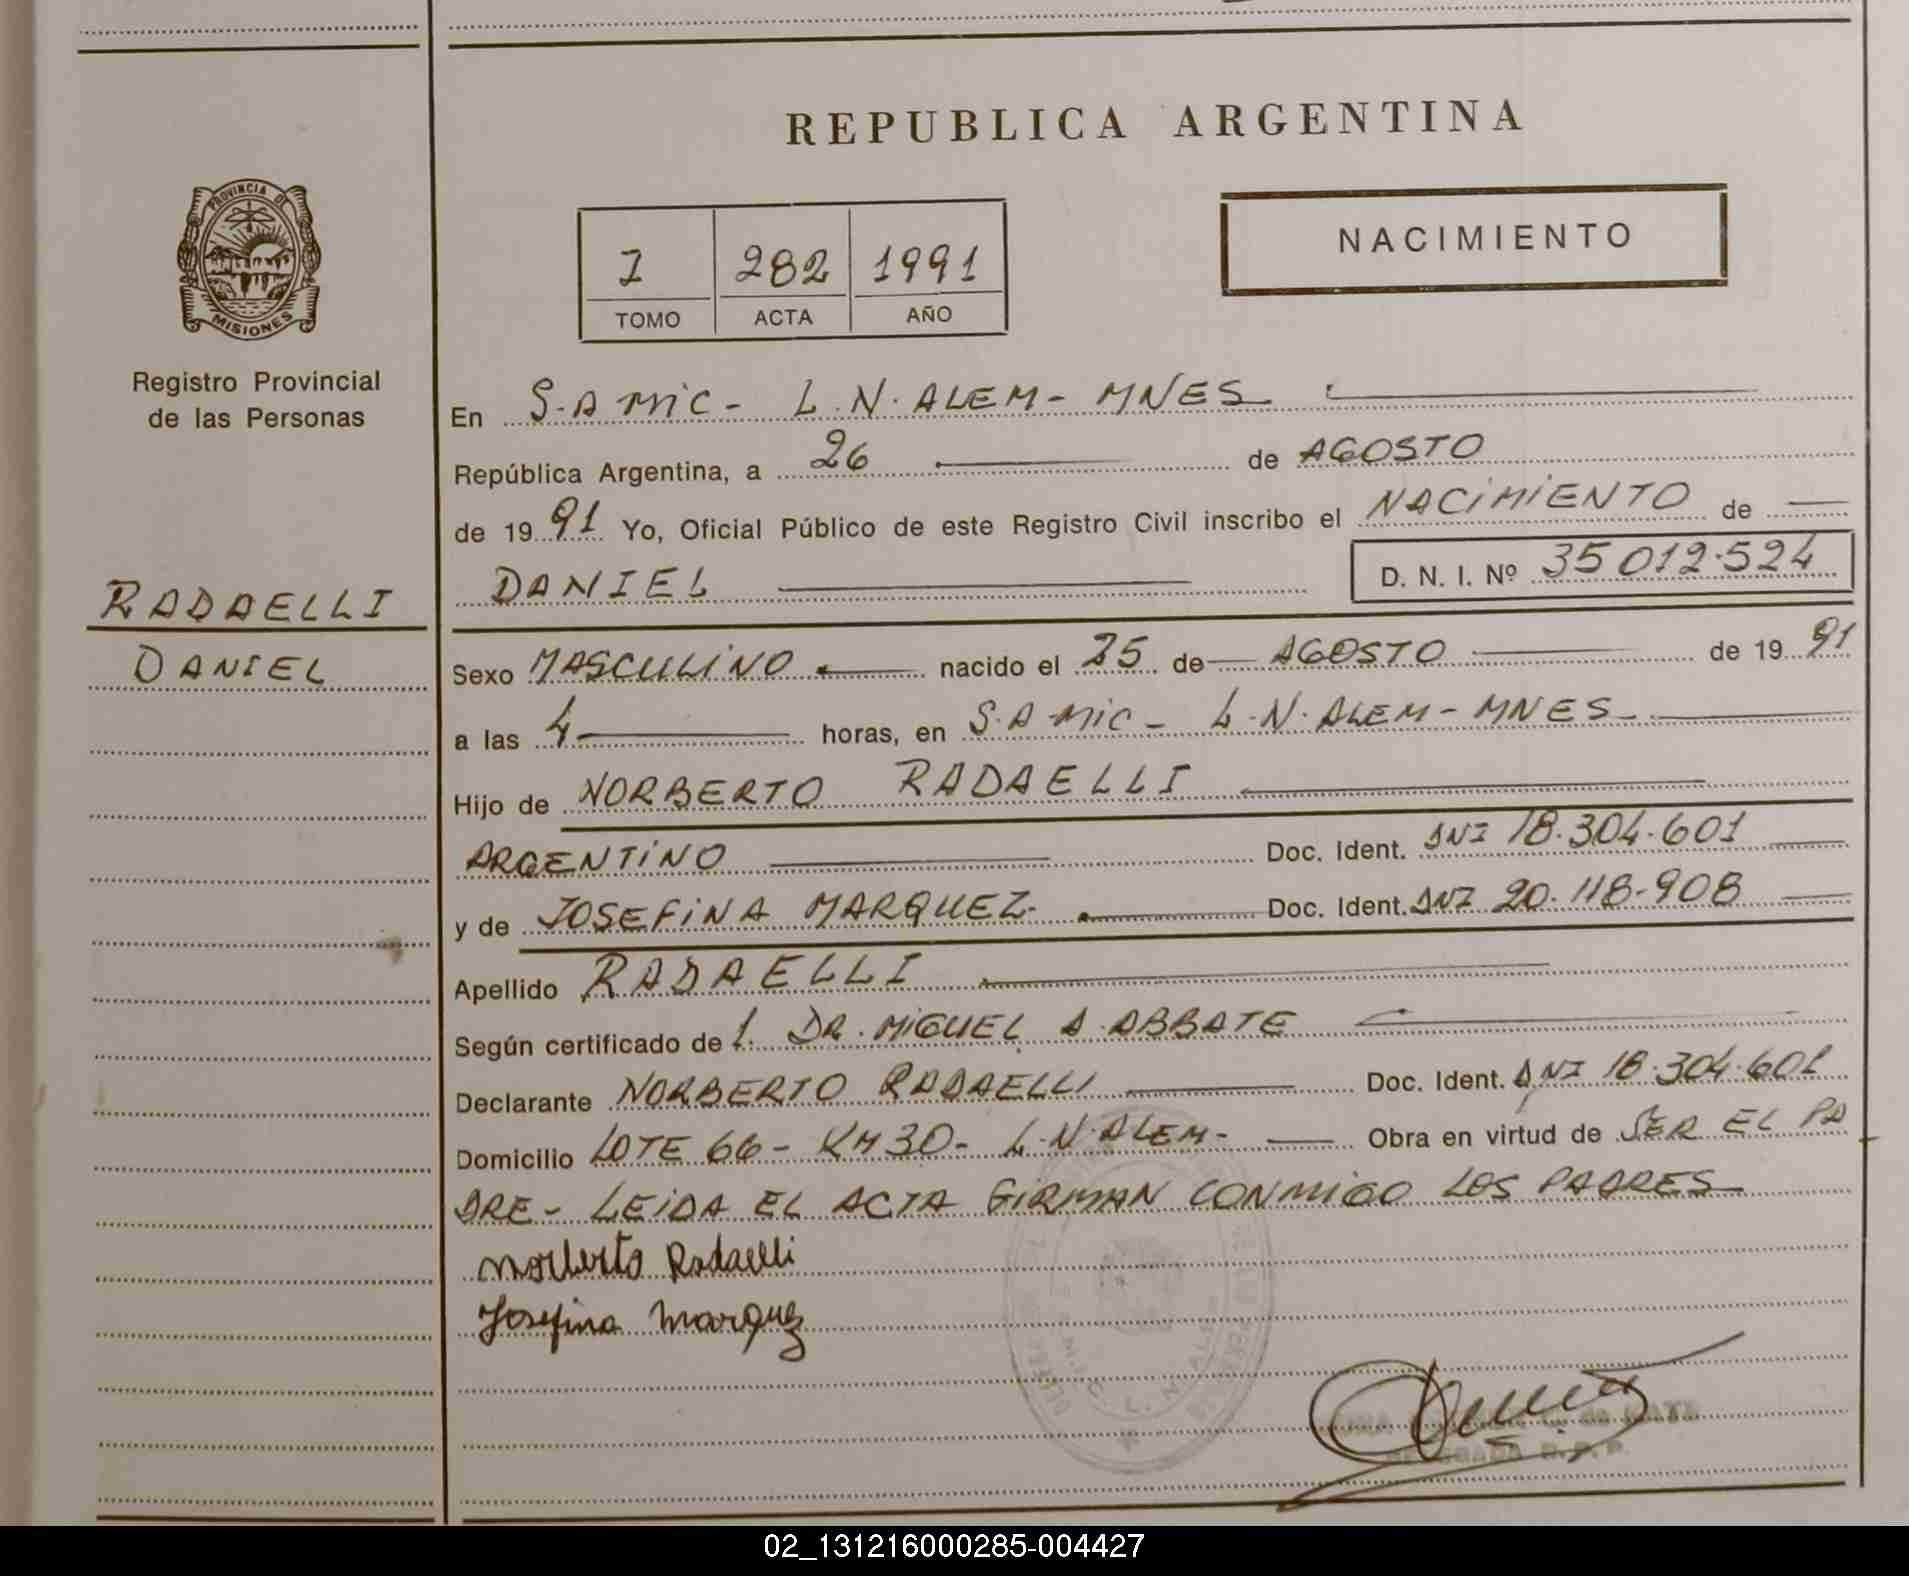 REPUBLICA ARGENTINA
PROVINCIA DE
MISIONES
Registro Provincial
de las Personas
I 282 1991
TOMO ACTA AÑO
NACIMIENTO
En S.A MIC - L.N. ALEM - MNES
República Argentina, a 26 de AGOSTO
de 1991 Yo, Oficial Público de este Registro Civil inscribo el NACIMIENTO de
DANIEL D. N. I. Nº 35 012.524
RADAELLI
DANIEL
Sexo MASCULINO nacido el 25 de AGOSTO de 1991
a las 4 horas, en S.A MIC - L.N. ALEM - MNES
Hijo de NORBERTO RADAELLI
ARGENTINO Doc. Ident. DNI 18.304.601
y de JOSEFINA MARQUEZ. Doc. Ident. DNI 20.118.908
Apellido RADAELLI
Según certificado de l. DR. MIGUEL A. ABBATE
Declarante NORBERTO RADAELLI Doc. Ident. DNI 18.304.601
Domicilio LOTE 66 - KM 30 - L.N. ALEM - Obra en virtud de SER EL PA
DRE - LEIDA EL ACTA FIRMAN CONMIGO LOS PADRES
Norberto Radaelli
Josefina Marquez
02_131216000285-004427